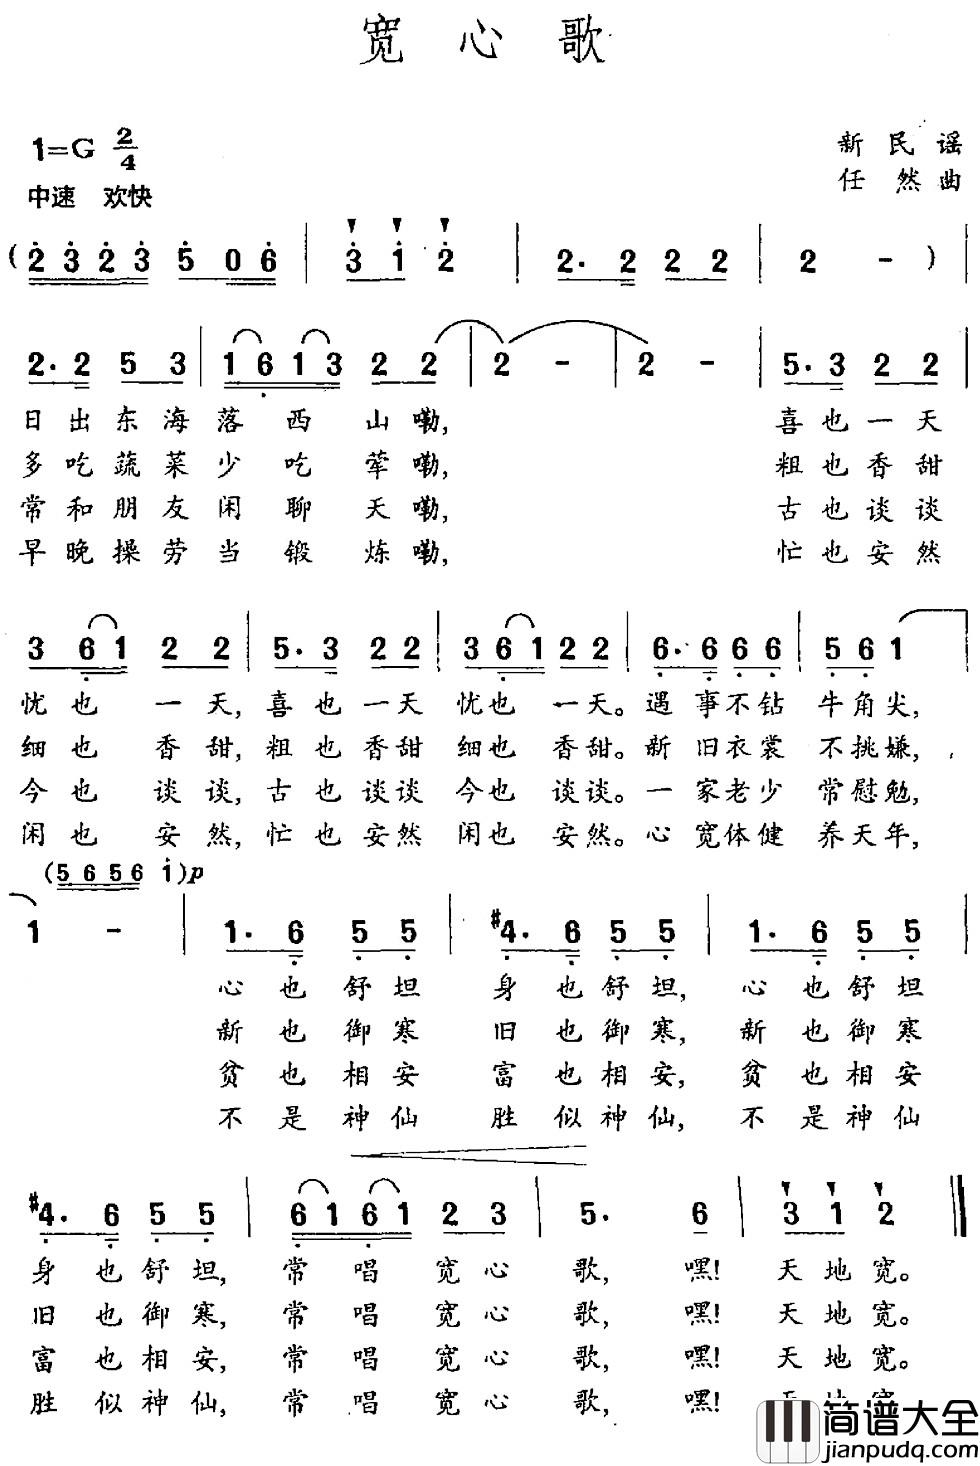 宽心歌
1=G 2/4
新民谣
中速 欢快
任然曲
(2 3 2 3 5 0 6 | 3 1 2 | 2. 2 2 2 | 2 - )
2. 2 5 3 | 1 6 1 3 2 2 | 2 - | 2 - | 5. 3 2 2 |
日出东海落西山嘞, 喜也一天
多吃蔬菜少吃荤嘞, 粗也香甜
常和朋友闲聊天嘞, 古也谈谈
早晚操劳当锻炼嘞, 忙也安然
3 6 1 2 2 | 5. 3 2 2 | 3 6 1 2 2 | 6. 6 6 6 | 5 6 1 |
忧也一天,喜也一天忧也一天。遇事不钻牛角尖,
细也香甜,粗也香甜细也香甜。新旧衣裳不挑嫌,
今也谈谈,古也谈谈今也谈谈。一家老少常慰勉,
闲也安然,忙也安然闲也安然。心宽体健养天年,
(5 6 5 6 1)p
1 - | 1. 6 5 5 | #4. 6 5 5 | 1. 6 5 5 |
心也舒坦身也舒坦,心也舒坦
新也御寒旧也御寒,新也御寒
贫也相安富也相安,贫也相安
不是神仙胜似神仙,不是神仙
#4. 6 5 5 | 6 1 6 1 2 3 | 5. 6 | 3 1 2 ‖
身也舒坦,常唱宽心歌,嘿!天地宽。
旧也御寒,常唱宽心歌,嘿!天地宽。
富也相安,常唱宽心歌,嘿!天地宽。
胜似神仙,常唱宽心歌,嘿!
简谱大全
jianpudq.com